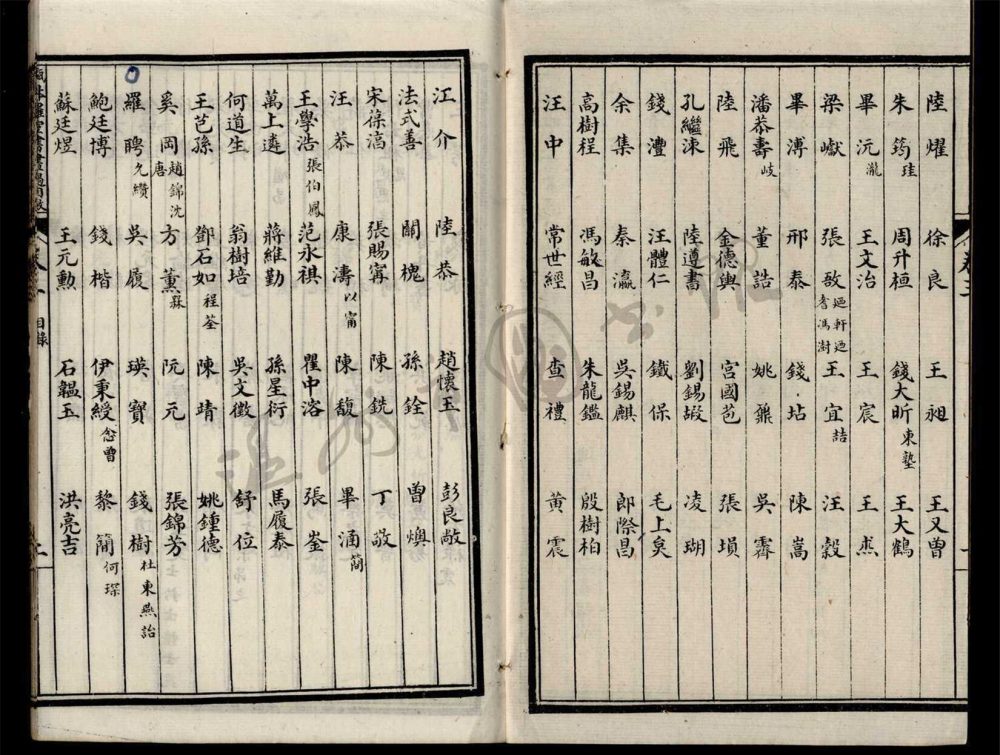 陸燿 徐良 王昶 王又曾
朱筠 珪 周升桓 錢大昕 東塾 王大鶴
畢沅 瀧 王文治 王宸 王杰
梁巘 張敔 王宜 詰 汪穀
畢溥 邢泰 錢坫 陳嵩
潘恭壽 岐 董誥 姚鼐 吳霽
陸飛 金德輿 宮國苞 張塤
孔繼涑 陸遵書 劉錫嘏 凌瑚
錢灃 汪體仁 鐵保 毛上炱
余集 秦瀛 吳錫麒 郎際昌
高樹程 馮敏昌 朱龍鑑 殷樹柏
汪中 常世經 查禮 黃震
江介 陸恭 趙懷玉 彭良敞
法式善 關槐 孫銓 曾燠
宋葆淳 張賜甯 陳銑 丁敬
汪恭 康濤 以甯 陳馥 畢涵 簡
王學浩 張伯鳳 范永祺 瞿中溶 張崟
萬上遴 蔣維勤 孫星衍 馬履泰
何道生 翁樹培 吳文徵 舒位
王芑孫 鄧石如 程荃 陳靖 姚鍾德
奚岡 趙錦沈唐 方薰 槑 阮元 張錦芳
羅聘 允纘 吳履 瑛寶 錢樹 杜東燕詒
鮑廷博 錢楷 伊秉綬 念曾 黎簡 何琛
蘇廷煜 王元勳 石韞玉 洪亮吉
目錄